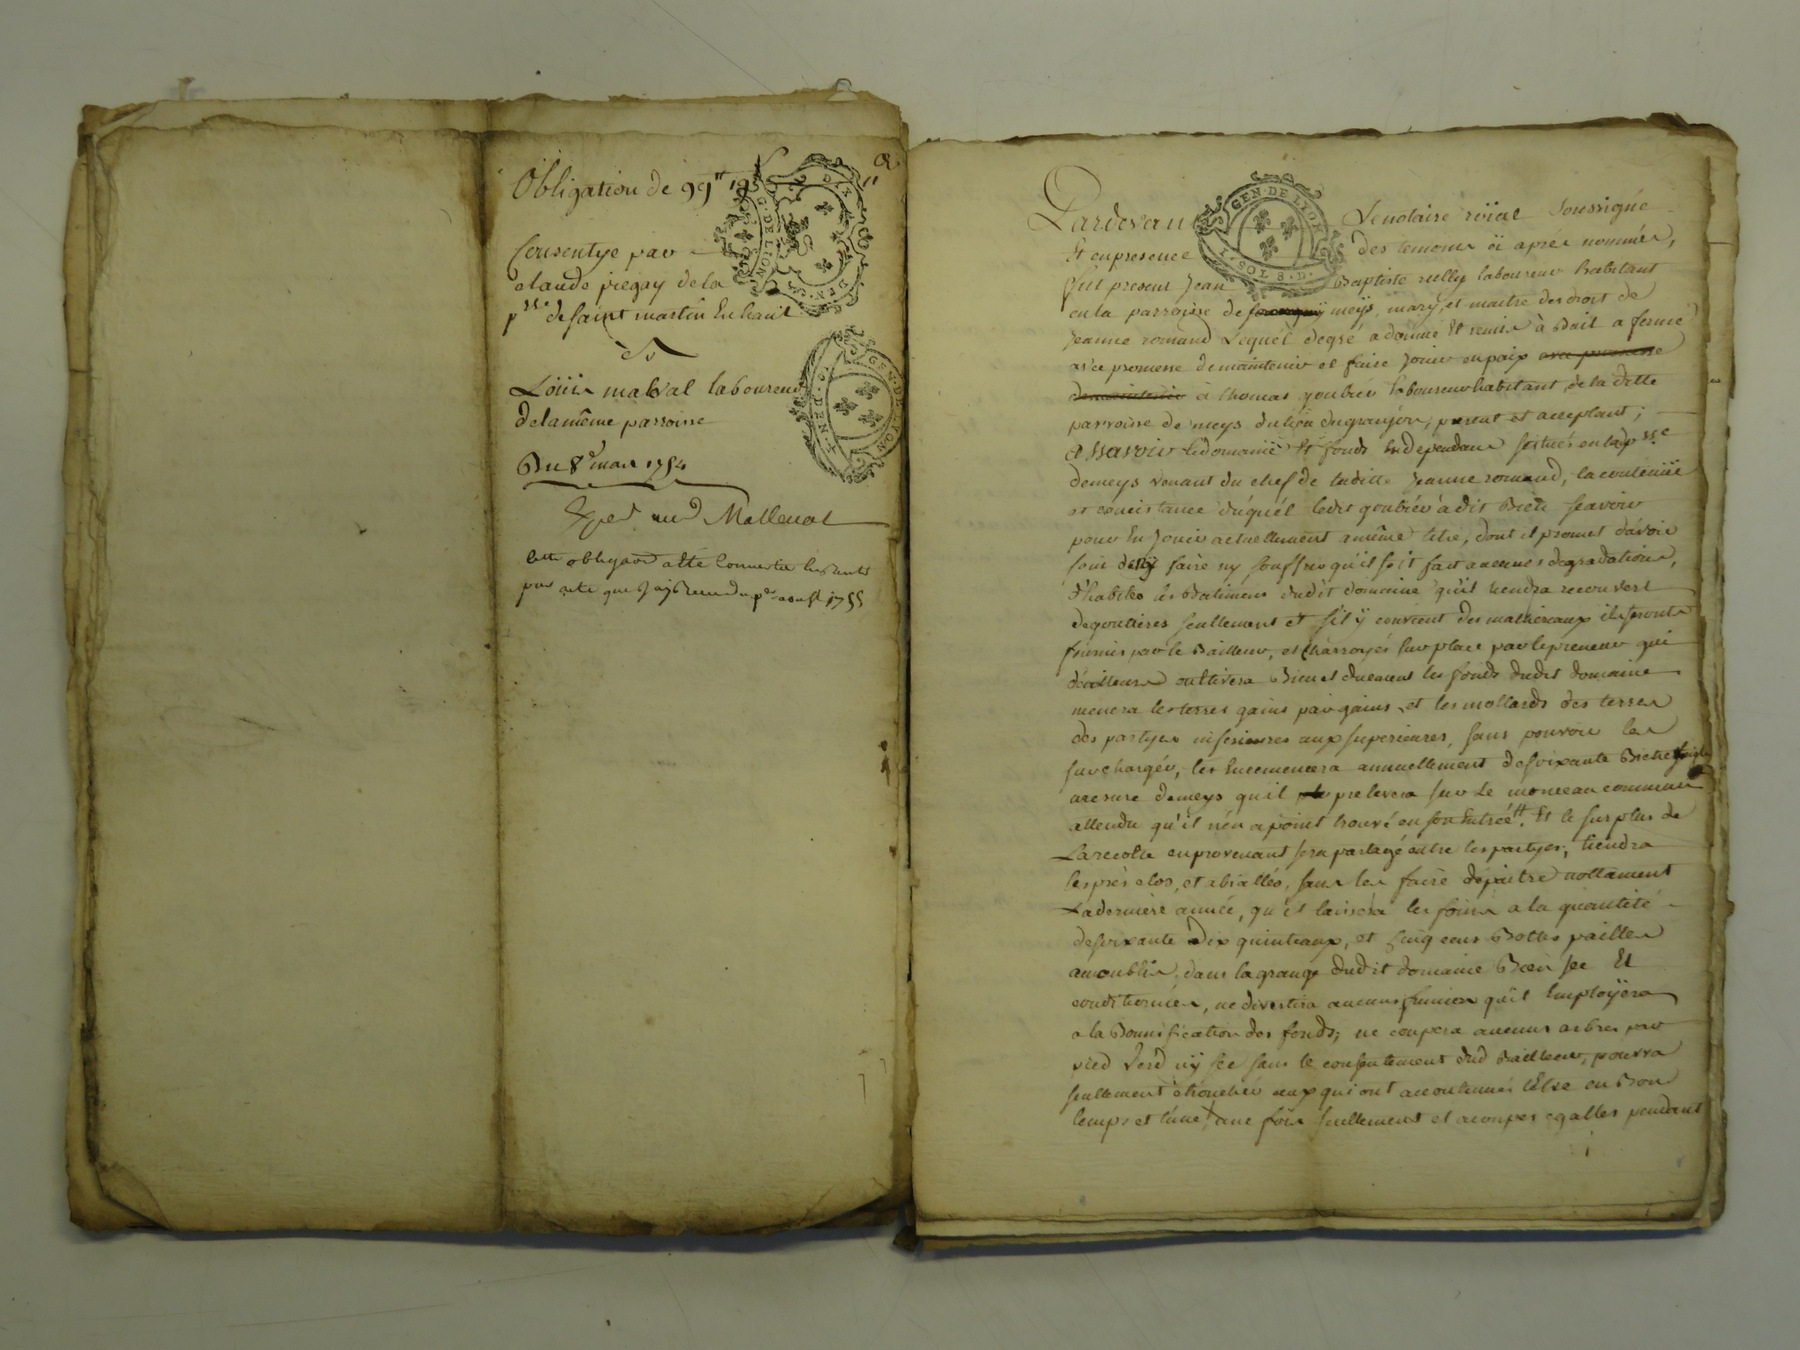 Obligation de 99tt 19s
Consentye par
claude piegay de la
psse de saint martin En haut
à
Loüis malval laboureur
de la même parroisse
Du 8e mars 1754
Exped au d Malleval
cette obligaon a été Convertie En rente
par acte que J'ay Receu du pr aoust 1755
GEN. DE LION
Pardevant Le notaire roïial soussigné
Et en presence des temoins cï aprés nommés,
fut present Jean Baptiste rully laboureur habitant
en la parroisse de meys, mary et maitre des droit de
Jeanne romand Lequel de gré a donné Et remis à Bail a ferme
avec promesse de maintenir et faire Jouir en paix avec promesse
de maintenir à thomas goubier laboureur habitant de la ditte
parroisse de meys du lieu de granjon, present et acceptant;
a ssavoir le domaine Et fonds En dependans scitués en la psse
de meys venant du chef de laditte Jeanne romand, la contenüe
et concistance duquél ledit goubier à dit Bien scavoir
pour En Jouir actuellement a même titre, dont il promet d'avoir
soin de n'y faire ny souffrir qu'il soit fait aucunes degradations,
d'habiter les Batimens dudit domaine qu'il tiendra recouvert
de goutieres seullement et s'il y convient des matheriaux ils seront
fournis par le Bailleur, et charroyés sur place par le preneur qui
d'ailleurs cultivera Bien et duement les fonds dudit domaine
menera les terres gains par gains, et les mollards des terres
des partyes inferieures aux superieures, sans pouvoir les
surchargér, les Encemencera annuellement de soixante Bichets seigle
mesure de meys qu'il prelevera sur Le monceau commun
attendu qu'il n'en a point trouvé en son Entrée. Et le surplus de
La recolte en provenant sera partagé entre les partyes, tiendra
les prés clos, et abialtés, sans les faire dépaitre nottament
La derniere année, qu'il laissera les foins a la quantité
de soixante Dix quinteaux, et cinq cens Bottes pailles
dans la grange dudit domaine Bien sec Et
conditionnés, ne divertira aucuns fumiers qu'il Employera
a la Bonnification des fonds; ne coupera aucuns arbres par
pied Verd ny sec sans le consentement dud Bailleur, pourra
seullement ceux qui ont accoutumés L'Etre en Bon
temps et lune, une fois seullement et a coupes egalles pendant